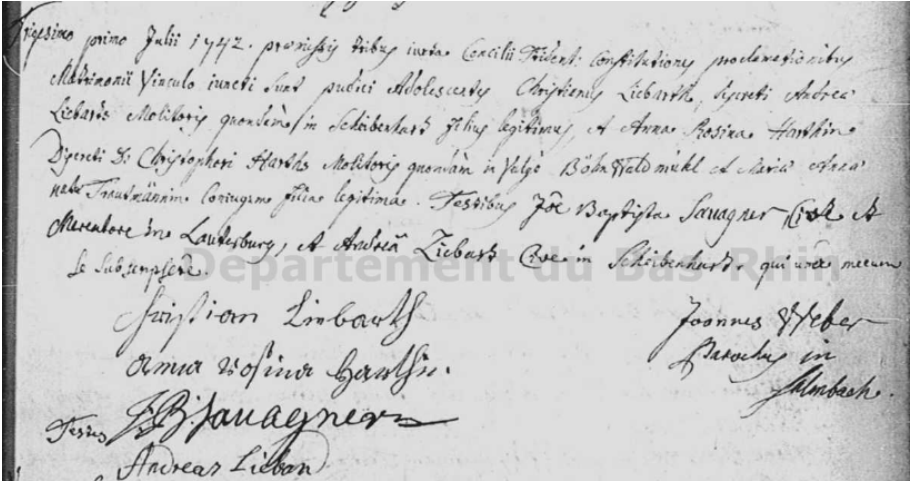 Trigesimo primo Julii 1742. praemissis tribus iuxta Concilii Trident: Constitutiones proclamationibus
Matrimonii Vinculo iuncti sunt pudici Adolescentes Christianus Liebarth, discreti Andreae
Liebarts Molitoris quondam in Scheibenhart filius legitimus, et Anna Rosina Harthin
Discreti D: Christophori Harths Molitoris quondam in Böhnwaldmühl et Maria Anna
natae Trautmännin Coniugum filia legitima. Testibus Jõe Baptista Savagner Cive et
Mercatore in Lauterburg, et Andreâ Liebart Cive in Scheibenhard, qui una mecum
se subscripsere.
Département du Bas-Rhin
Christian Liebarth
Anna Rosina Harthin.
Joannes Weber
Parochus in
Salmbach.
Testes J B Savagner
Andreas Liebard